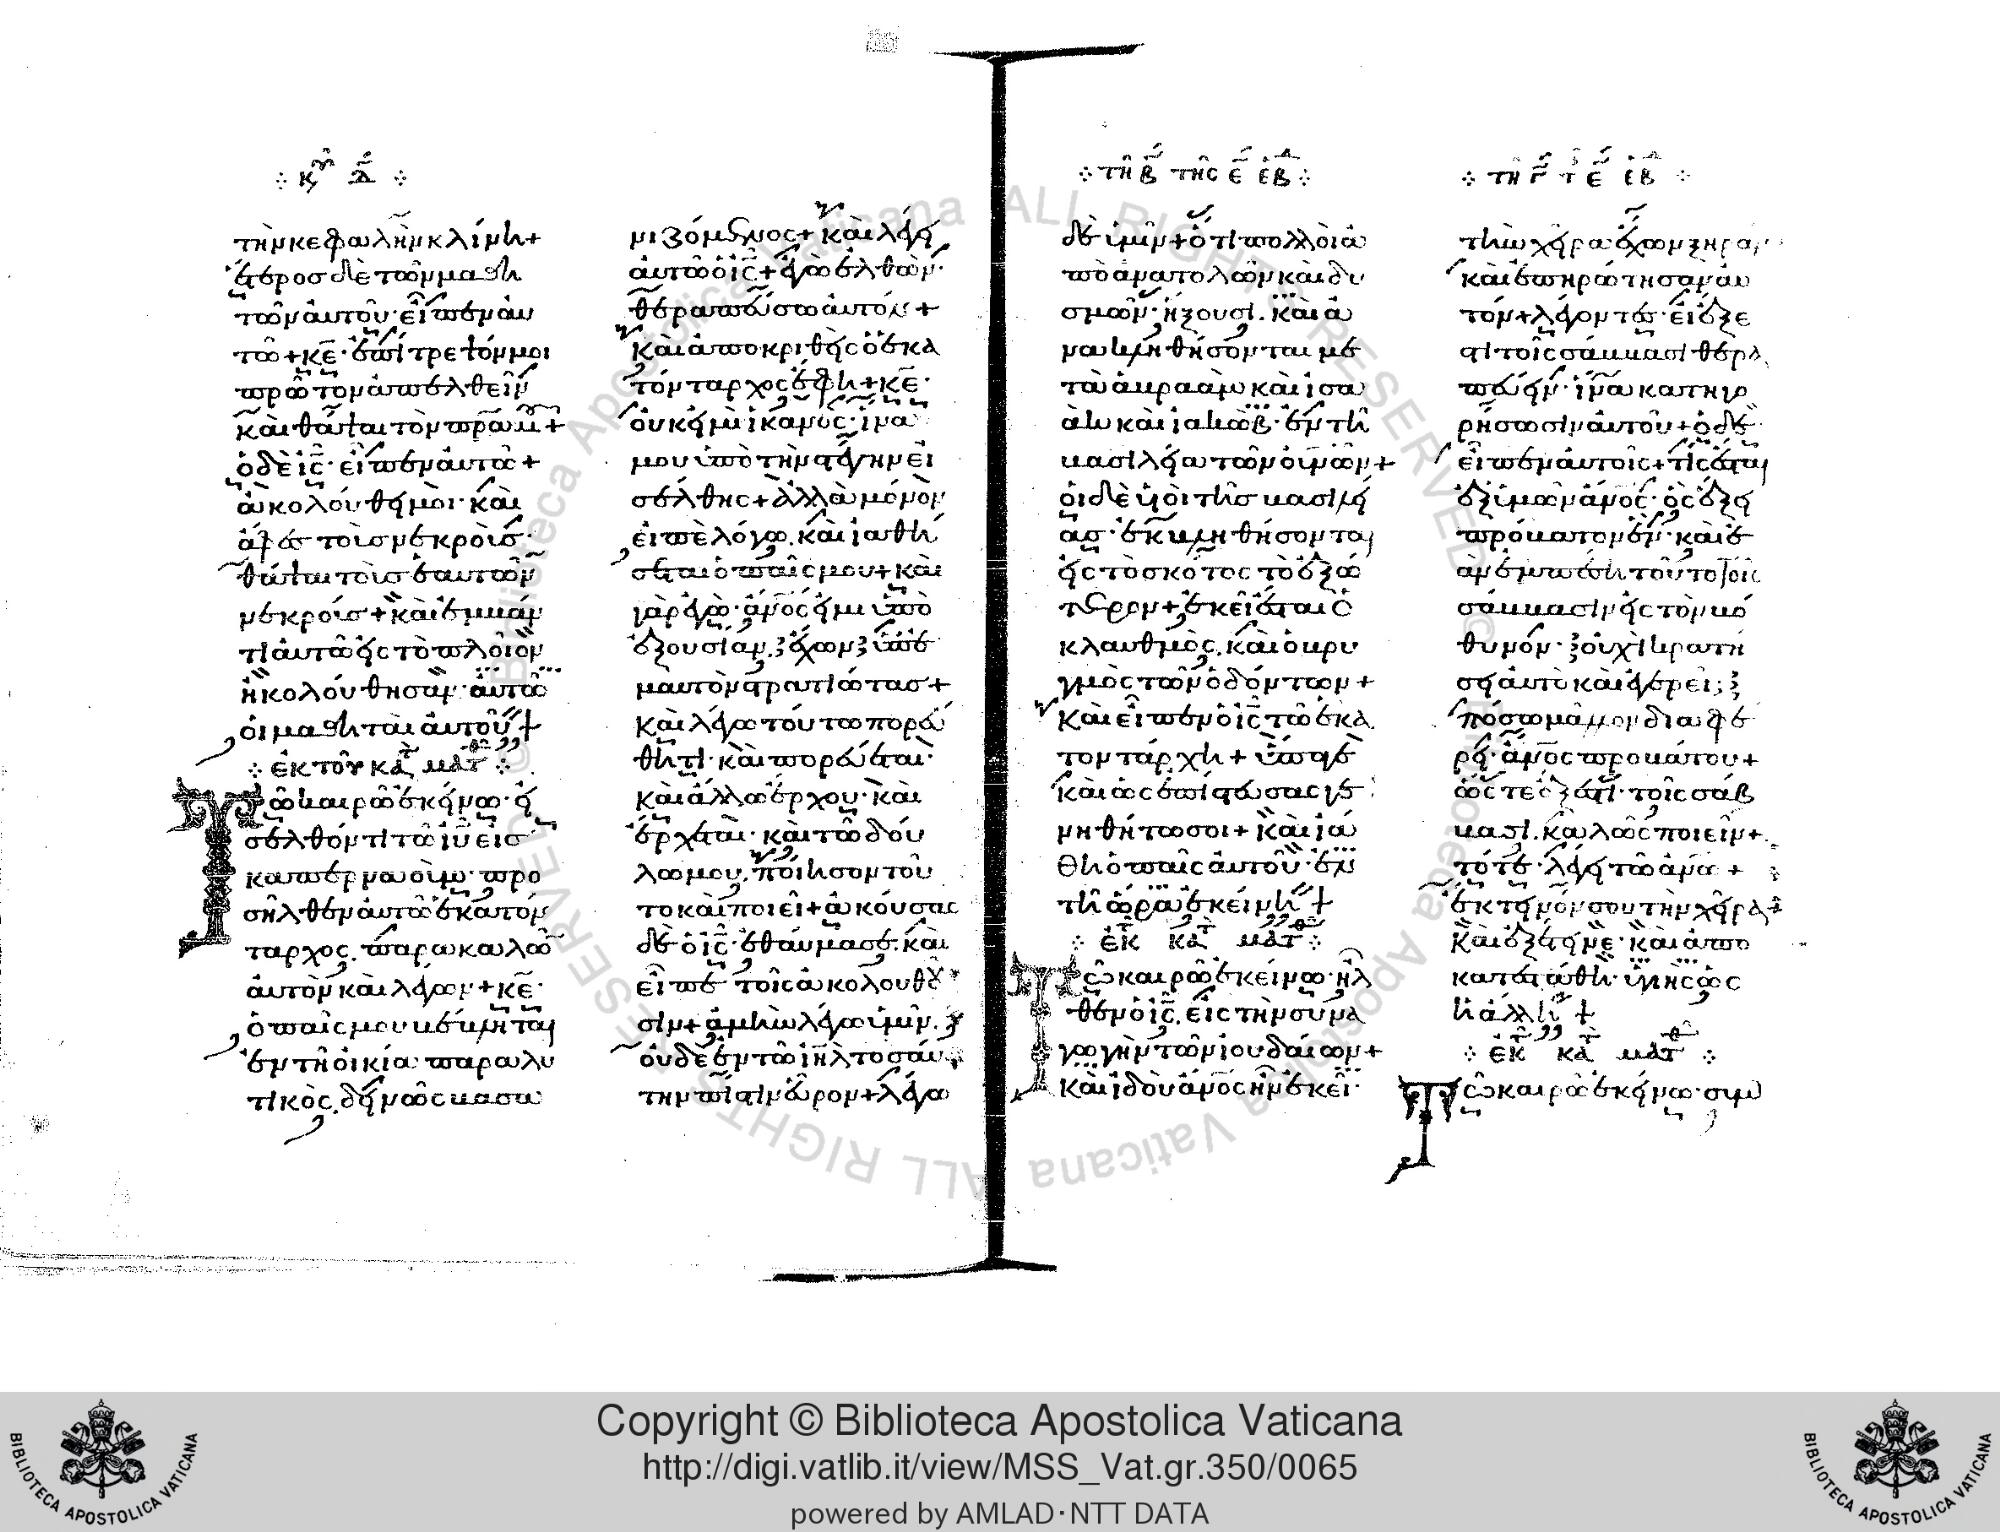 κυ δ
τὴν κεφαλὴν κλίνη+
ἕτερος δὲ τῶν μαθη
τῶν αὐτοῦ· εἶπεν αὐ
τῶ+κε· ἐπίτρεψόν μοι
πρῶτον ἀπελθεῖν
καὶ θάψαι τὸν πρα μου+
ὁ δὲ ις· εἶπεν αὐτῶ+
ἀκολούθει μοι· καὶ
ἄφες τοὺς νεκροὺς·
θάψαι τοὺς ἑαυτῶν
νεκρούς+καὶ ἐμβάν
τι αὐτῶ εἰς τὸ πλοῖον
ἠκολούθησαν· αὐτῶ
οἱ μαθηταὶ αὐτοῦ+
ἐκ τοῦ κατ ματθ
Τῶ καιρῶ ἐκείνω· εἰ
σελθόντι τῶ ιυ εἰσ
καπερναούμ· προ
σῆλθεν αὐτῶ ἑκατόν
ταρχος, παρακαλῶ
αὐτὸν καὶ λέγων+κε·
ὁ παῖς μου βέβληται
ἐν τῆ οἰκία παραλυ
τικὸς, δεινῶς βασα
νιζόμενος+καὶ λέγει
αὐτῶ ὁ ις+ἐγὼ ἐλθὼν·
θεραπεύσω αὐτόν+
Καὶ ἀποκριθεὶς ὁ ἑκα
τόνταρχος ἔφη+κε·
οὐκ εἰμὶ ἱκανὸς· ἵνα
μου ὑπὸ τὴν στέγην εἰ
σέλθης+ἀλλὰ μόνον
εἰπὲ λόγω, καὶ ἰαθή
σεται ὁ παῖς μου+καὶ
γὰρ ἐγὼ· ανος εἰμι ὑπὸ
ἐξουσίαν, ἔχων ὑπ᾽ ἐ
μαυτὸν στρατιώτας+
Καὶ λέγω τούτω πορεύ
θητι· καὶ πορεύεται·
καὶ ἄλλω ἔρχου· καὶ
ἔρχεται· καὶ τῶ δού
λω μου, ποίησον τοῦ
το καὶ ποιεῖ+ἀκούσας
δὲ ὁ ις· ἐθαύμασε, καὶ
εἶπε τοῖς ἀκολουθοῦ
σιν+ἀμὴν λέγω ὑμῖν,
οὐδὲ ἐν τῶ ιηλ τοσαύ
την πίστιν εὗρον+λέγω
τη β της ε εβδ
δὲ ὑμῖν+ὅτι πολλοὶ ἀ
πὸ ἀνατολῶν καὶ δυ
σμῶν· ἥξουσι, καὶ ἀ
νακλιθήσονται με
τὰ ἀβραὰμ καὶ ἰσα
ὰκ καὶ ἰακὼβ· ἐν τῆ
βασιλεία τῶν ουνῶν+
οἱ δὲ υἱοὶ τῆς βασιλεί
ας· ἐκβληθήσονται
εἰς τὸ σκότος τὸ ἐξώ
τερον+ἐκεῖ ἔσται ὁ
κλαυθμὸς, καὶ ὁ βρυ
γμὸς τῶν ὀδόντων+
Καὶ εἶπεν ὁ ις τῶ ἑκα
τοντάρχη+ὕπαγε
καὶ ὡς ἐπίστευσας γε
νηθήτω σοι+καὶ ἰά
θη ὁ παῖς αὐτοῦ· ἐν
τῆ ὥρα ἐκείνη+
ἐκ κατ ματθ
Τῶ καιρῶ ἐκείνω· ἦλ
θεν ὁ ις, εἰς τὴν συνα
γωγὴν τῶν ἰουδαίων+
καὶ ἰδοὺ ανος ἦν ἐκεῖ·
τη γ τ ε εβδ
τὴν χεῖρα ἔχων ξηράν
καὶ ἐπηρώτησαν αὐ
τόν+λέγοντες· εἰ ἔξε
στι τοῖς σάββασι θερα
πεύειν· ἵνα κατηγο
ρήσωσιν αὐτοῦ+ὁ δὲ·
εἶπεν αὐτοῖς+τίς ἔσται
ἐξ ὑμῶν ανος· ὃς ἕξει
πρόβατον ἕν, καὶ ἐ
ὰν ἐμπέση τοῦτο τοῖς
σάββασιν εἰς τὸν βό
θυνόν· οὐχὶ κρατή
σει αὐτὸ καὶ ἐγερεῖ;
πόσω μᾶλλον διαφέ
ρει· ανος προβάτου+
ὥστε ἔξεστι· τοῖς σάβ
βασι, καλῶς ποιεῖν+
τότε· λέγει τῶ ανω+
ἔκτεινόν σου τὴν χεῖρα+
Καὶ ἐξέτεινε· καὶ ἀπο
κατεστάθη· ὑγιὴς ὡς
ἡ ἄλλη+
ἐκ κατ ματθ
Τῶ καιρῶ ἐκείνω· συμ
Copyright © Biblioteca Apostolica Vaticana
http://digi.vatlib.it/view/MSS_Vat.gr.350/0065
powered by AMLAD·NTT DATA
BIBLIOTECA APOSTOLICA VATICANA
BIBLIOTECA APOSTOLICA VATICANA